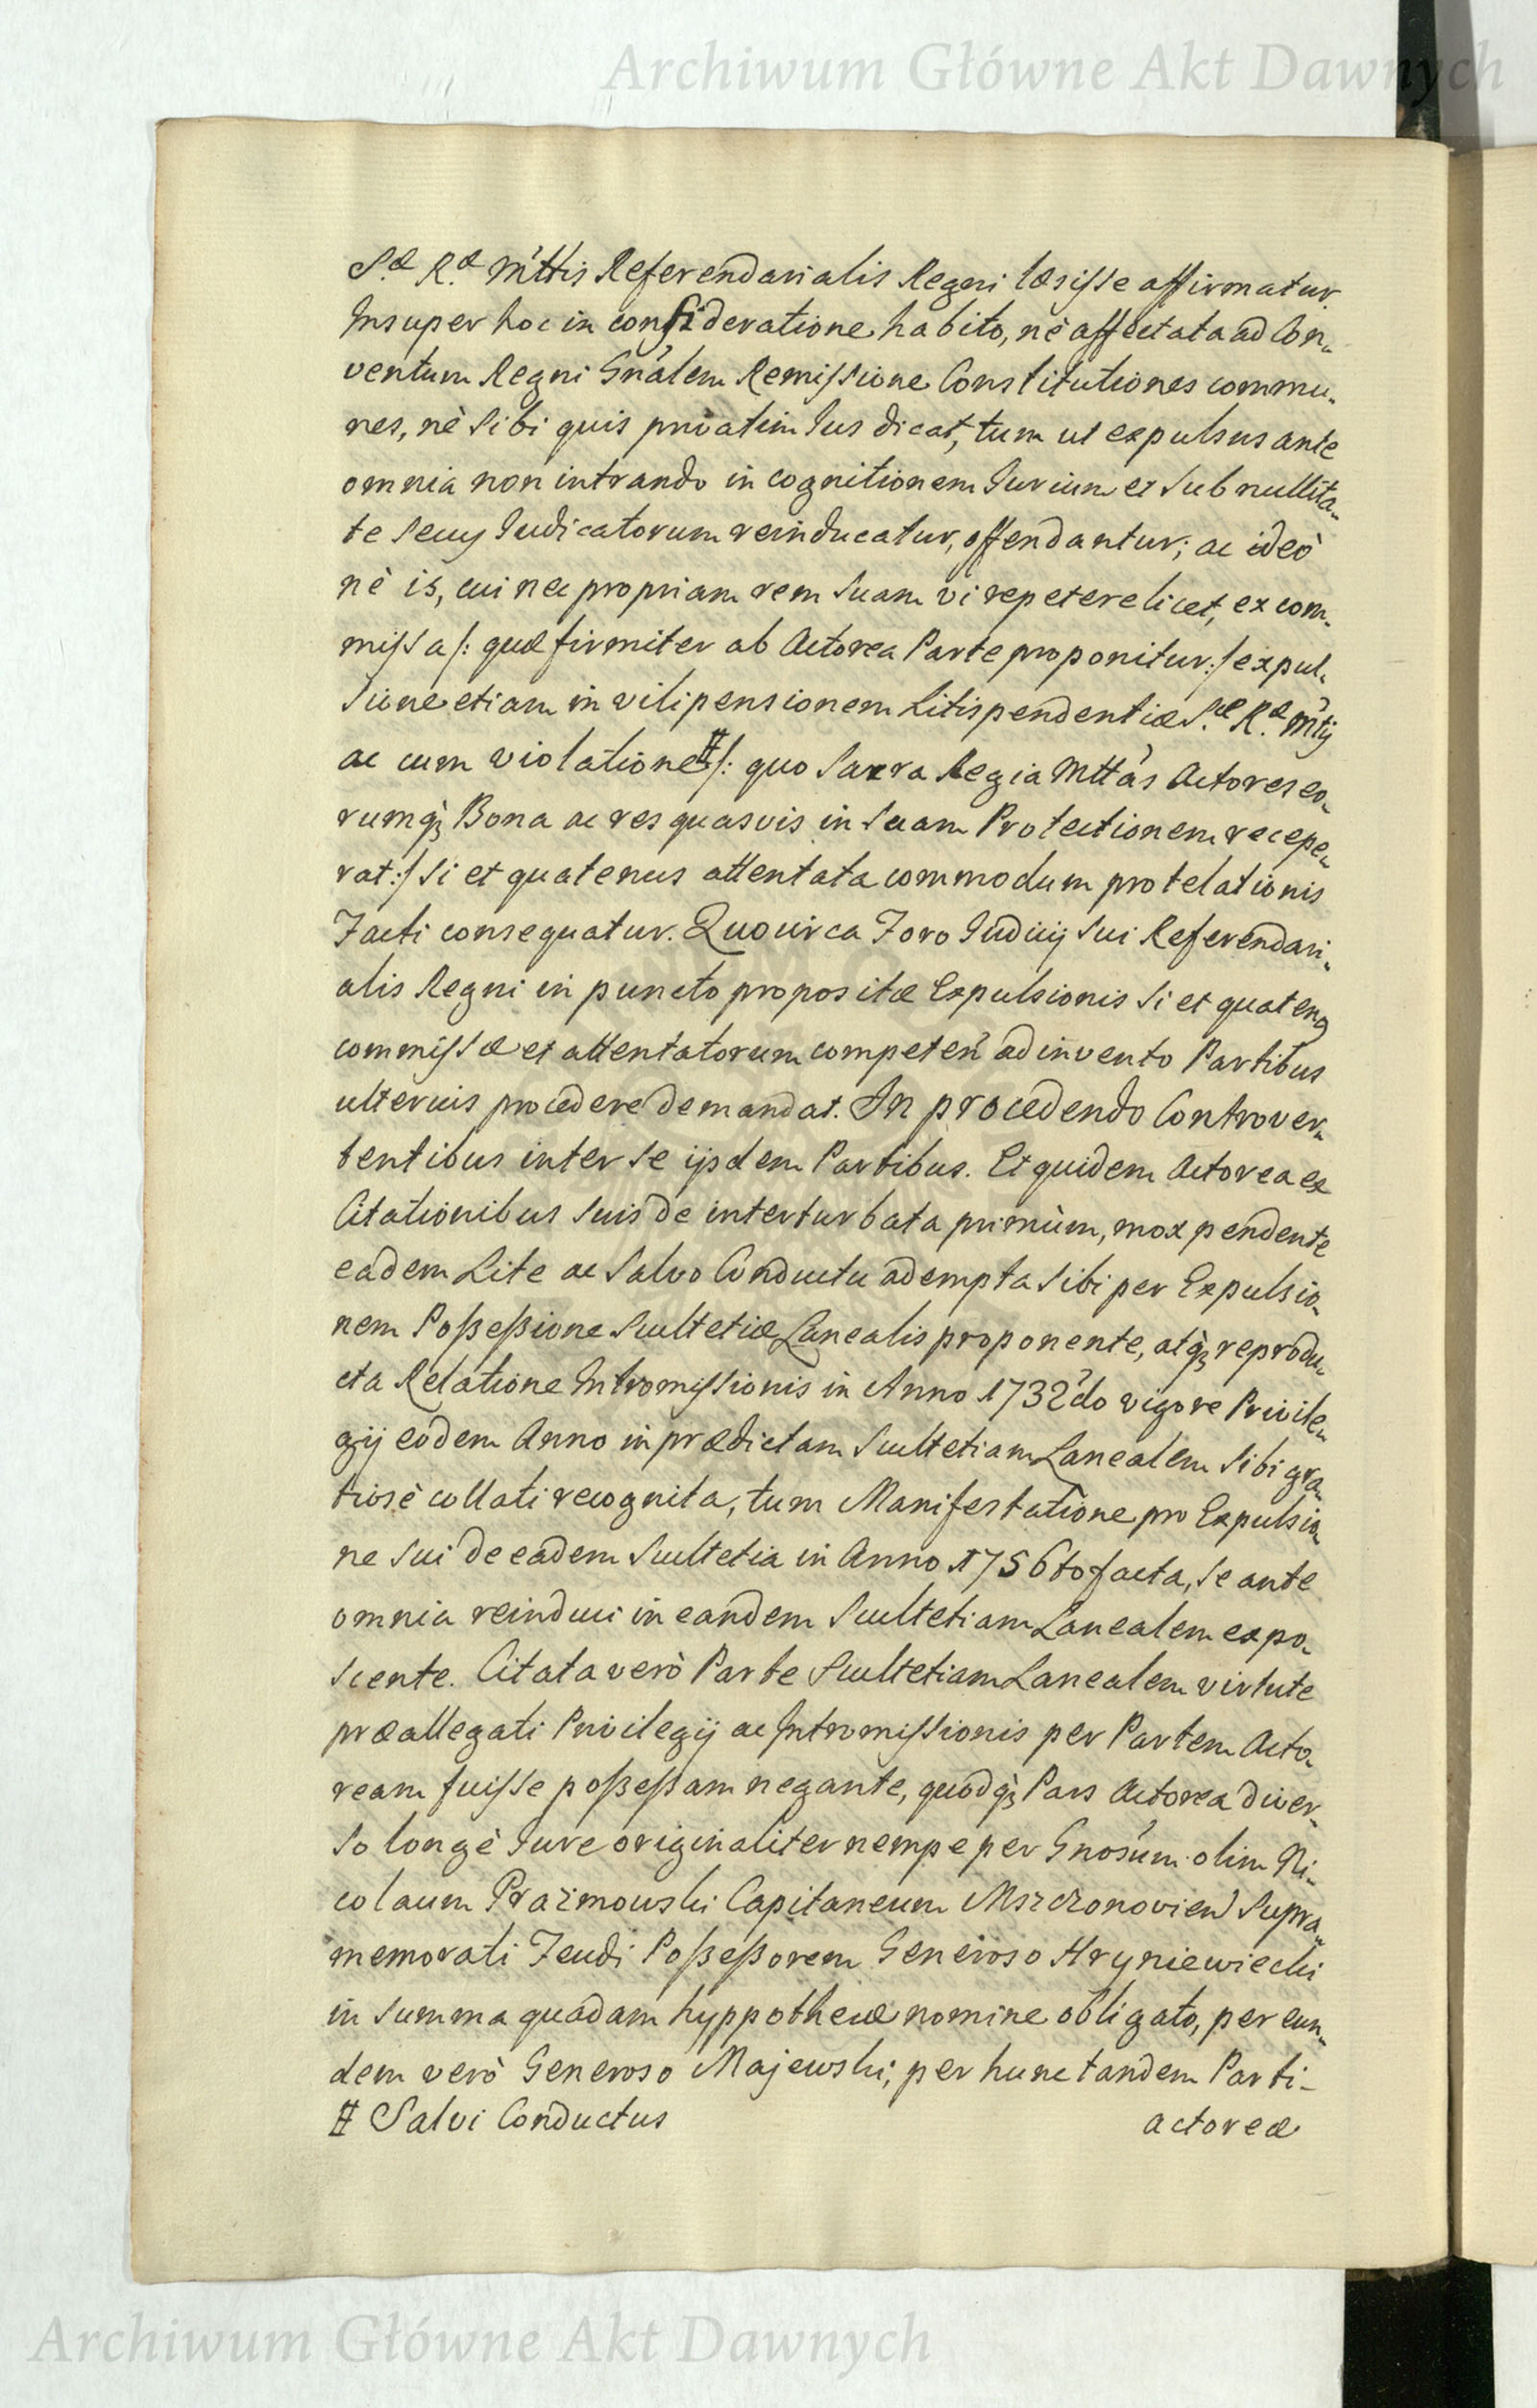 Archiwum Główne Akt Dawnych
S.æ R.æ M'ttis Referendarialis Regni læsisse affirmatur.
Insuper hoc in consideratione habito, nè affectata ad Con„
ventum Regni Gn̄alem Remissione Constitutiones commu„
nes, nè sibi quis privatim Jus dicat, tum ut expulsus ante
omnia non intrando in cognitionem Jurium et sub nullita„
te secus Judicatorum reinducatur, offendantur; ac ideò
nè is, cui nec propriam rem suam vi repetere licet, ex com„
missa /: quæ firmiter ab Actorea Parte proponitur :/ expul„
sione etiam in vilipensionem Litispendentiæ S.æ R.æ M'tis
ac cum violatione # /: quo Sacra Regia Mtt'as Actores eo„
rumq; Bona ac res quasvis in suam Protectionem recepe„
rat :/ si et quatenus attentata commodum protelationis
Facti consequatur. Quocirca Foro Judicij sui Referendari„
alis Regni in puncto propositæ Expulsionis si et quatenus
commissæ et attentatorum competen̄ adinvento Partibus
ulterius procedere demandat. In procedendo Controver„
tentibus inter se ijsdem Partibus. Et quidem Actorea ex
Citationibus suis de interturbata primùm, mox pendente
eadem Lite ac Salvo Conductu adempta sibi per Expulsio„
nem Poßeßione Scultetiæ Lanealis proponente, atq; reprodu„
cta Relatione Intromissionis in Anno 1732do vigore Privile„
gij eodem Anno in prædictam Scultetiam Lanealem sibi gra„
tiosè collati recognita, tum Manifestatione pro Expulsio„
ne sui de eadem Scultetia in Anno 1756to facta, se ante
omnia reinduci in eandem Scultetiam Lanealem expo„
scente. Citata verò Parte Scultetiam Lanealem virtute
præallegati Privilegij ac Intromissionis per Partem Acto„
ream fuisse poßeßam negante, quodq; Pars Actorea diver„
so longè Jure originaliter nempe per Gnosum olim Ni„
colaum Prażmowski Capitaneum Mszczonovien̄ supra„
memorati Feudi Poßeßorem Generoso Hryniewiecki
in summa quadam hyppothecæ nomine obligato, per eun„
dem verò Generoso Majewski, per hunc tandem Parti„
# Salvi Conductus
actoreæ
Archiwum Główne Akt Dawnych